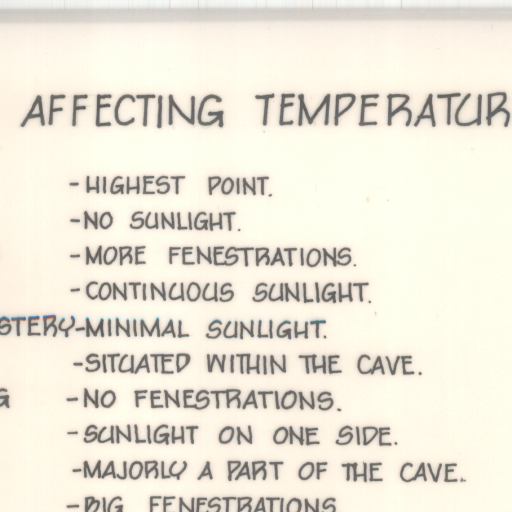 AFFECTING TEMPERATUR
-HIGHEST POINT.
-NO SUNLIGHT.
-MORE FENESTRATIONS.
-CONTINUOUS SUNLIGHT.
STERY-MINIMAL SUNLIGHT.
-SITUATED WITHIN THE CAVE.
G -NO FENESTRATIONS.
-SUNLIGHT ON ONE SIDE.
-MAJORLY A PART OF THE CAVE.
-BIG FENESTRATIONS